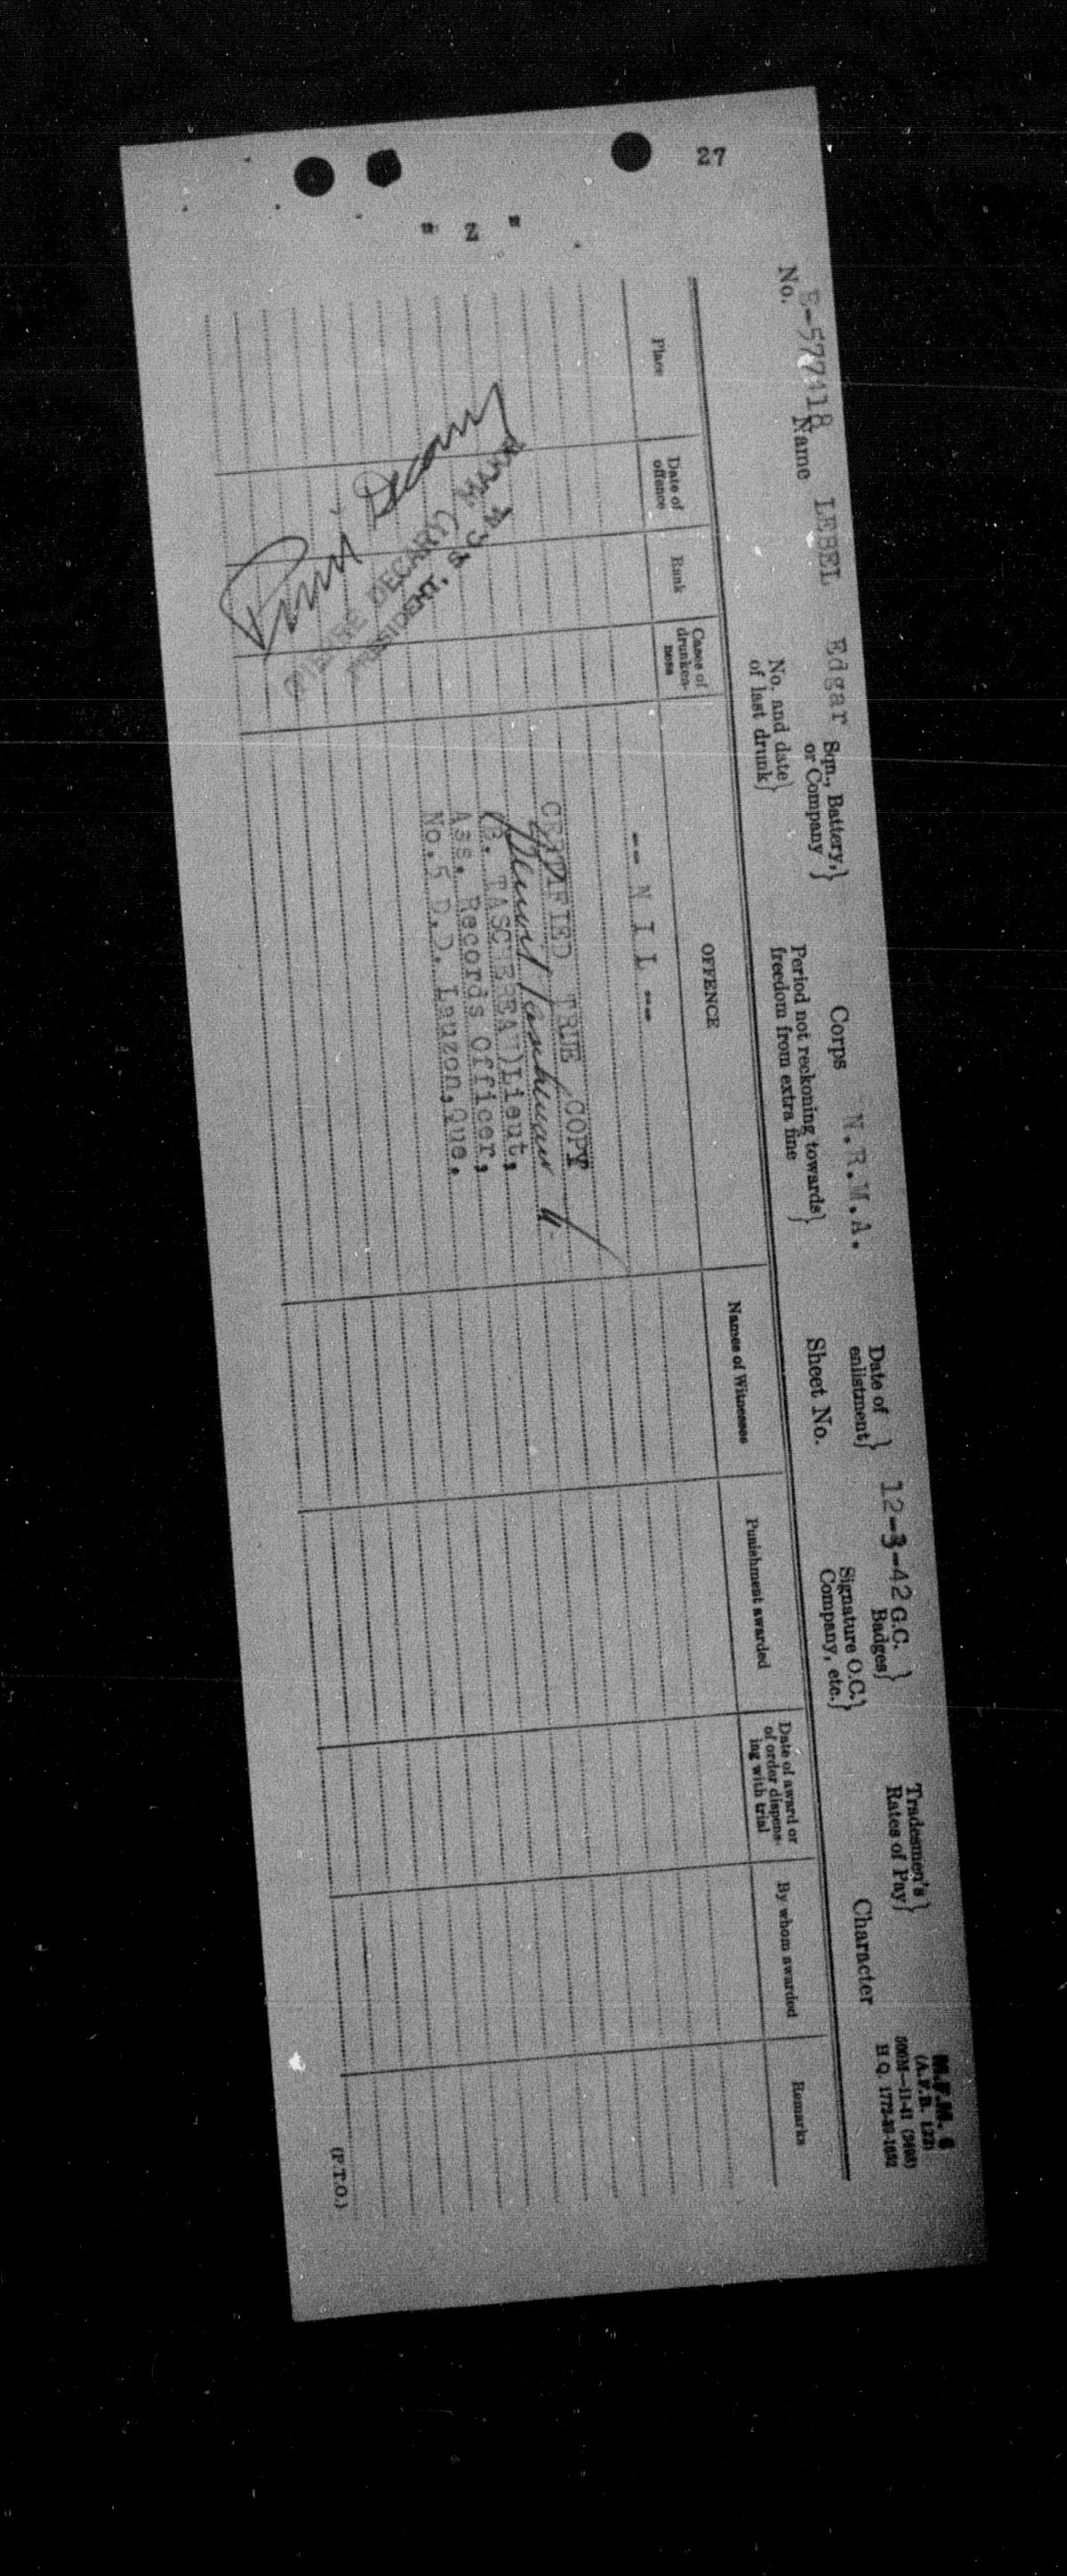 27
" Z "
M.F.M. 6
(A.F.B. 122)
500M—11-41 (3498)
H.Q. 1772-39-1652
No. E-577418 Name LEBEL Edgar Sqn., Battery, or Company} Corps N.R.M.A. Date of enlistment} 12-3-42 G.C. Badges} Tradesmen's Rates of Pay}
No. and date of last drunk} Period not reckoning towards freedom from extra fine} Sheet No. Signature O.C. Company, etc.} Character
Place Date of offence Rank Cases of drunkenness OFFENCE Names of Witnesses Punishment awarded Date of award or of order dispensing with trial By whom awarded Remarks
-- N I L --
CERTIFIED TRUE COPY
(B. TASCHEREAU) Lieut,
Ass. Records Officer,
No.5 D.D. Lauzon, Que.
Pierre Decary
(PIERRE DECARY) MAJOR
PRESIDENT, S G.M
(P.T.O.)